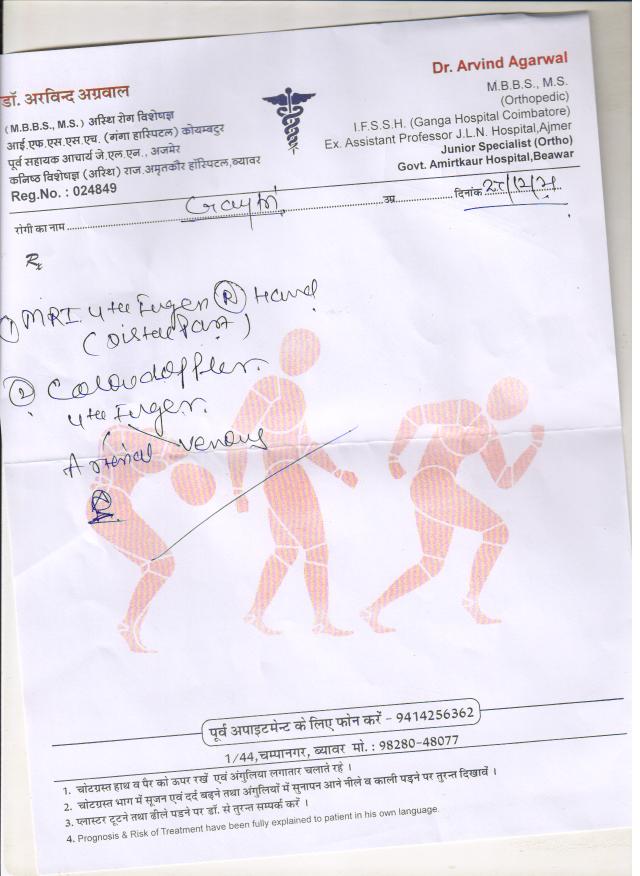 डॉ. अरविन्द अग्रवाल
(M.B.B.S., M.S.) अस्थि रोग विशेषज्ञ
आई.एफ.एस.एस.एच. (गंगा हास्पिटल) कोयम्बटुर
पूर्व सहायक आचार्य जे.एल.एन., अजमेर
कनिष्ठ विशेषज्ञ (अस्थि) राज.अमृतकौर हॉस्पिटल,ब्यावर
Reg.No. : 024849
Dr. Arvind Agarwal
M.B.B.S., M.S.
(Orthopedic)
I.F.S.S.H. (Ganga Hospital Coimbatore)
Ex. Assistant Professor J.L.N. Hospital,Ajmer
Junior Specialist (Ortho)
Govt. Amirtkaur Hospital,Beawar
रोगी का नाम उम्र दिनांक
Rx
1) MRI 4th Finger (R) Hand
(Distal Part)
2 Colour doppler.
4th Finger.
Arterial venous
पूर्व अपाइटमेन्ट के लिए फोन करें - 9414256362
1/44,चम्पानगर, ब्यावर मो. : 98280-48077
1. चोटग्रस्त हाथ व पैर को ऊपर रखें एवं अंगुलिया लगातार चलाते रहे ।
2. चोटग्रस्त भाग में सूजन एवं दर्द बढ़ने तथा अंगुलियों में सुनापन आने नीले व काली पड़ने पर तुरन्त दिखावें ।
3. प्लास्टर टूटने तथा ढीले पडने पर डॉ. से तुरन्त सम्पर्क करें ।
4. Prognosis & Risk of Treatment have been fully explained to patient in his own language.